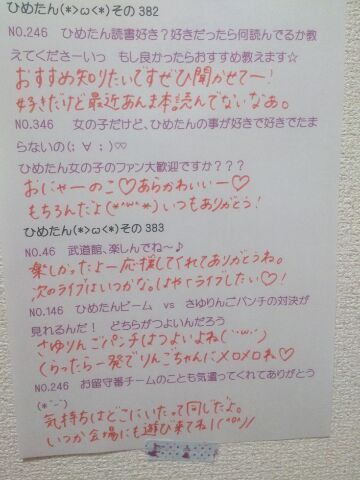 ひめたん(*>ω<*)その 382
NO.246　ひめたん読書好き？好きだったら何読んでるか教
えてくださーいっ　もし良かったらおすすめ教えます☆
おすすめ知りたいですぜひ聞かせてー！
好きだけど最近あんま本読んでないなぁ。
NO.346　女の子だけど、ひめたんの事が好きで好きでたま
らないの(; ∀ ; )♡♡
ひめたん女の子のファン大歓迎ですか？？？
おじゃーのこ♡あらかわいいー♡
もちろんだよ(*'ω'*)いつもありがとう！
ひめたん(*>ω<*)その 383
NO.46　武道館、楽しんでね～♪
楽しかったよー応援してくれてありがとうね。
次のライブはいつかな。はやくライブしたい♡！
NO.146　ひめたんビーム　vs　さゆりんごパンチの対決が
見れるんだ！　どちらがつよいんだろう
さゆりんごパンチはつよいよね(`･ω･´)
くらったら一発でりんごちゃんにメロメロね♡
NO.246　お留守番チームのことも気遣ってくれてありがとう
(*´-`)
気持ちはどこにいたって同じだよ。
いつか会場にも遊び来てね！(^o^)/